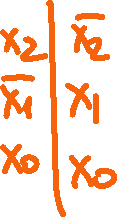 x₂ | x̅₂
x̅₁ | x₁
x₀ | x₀